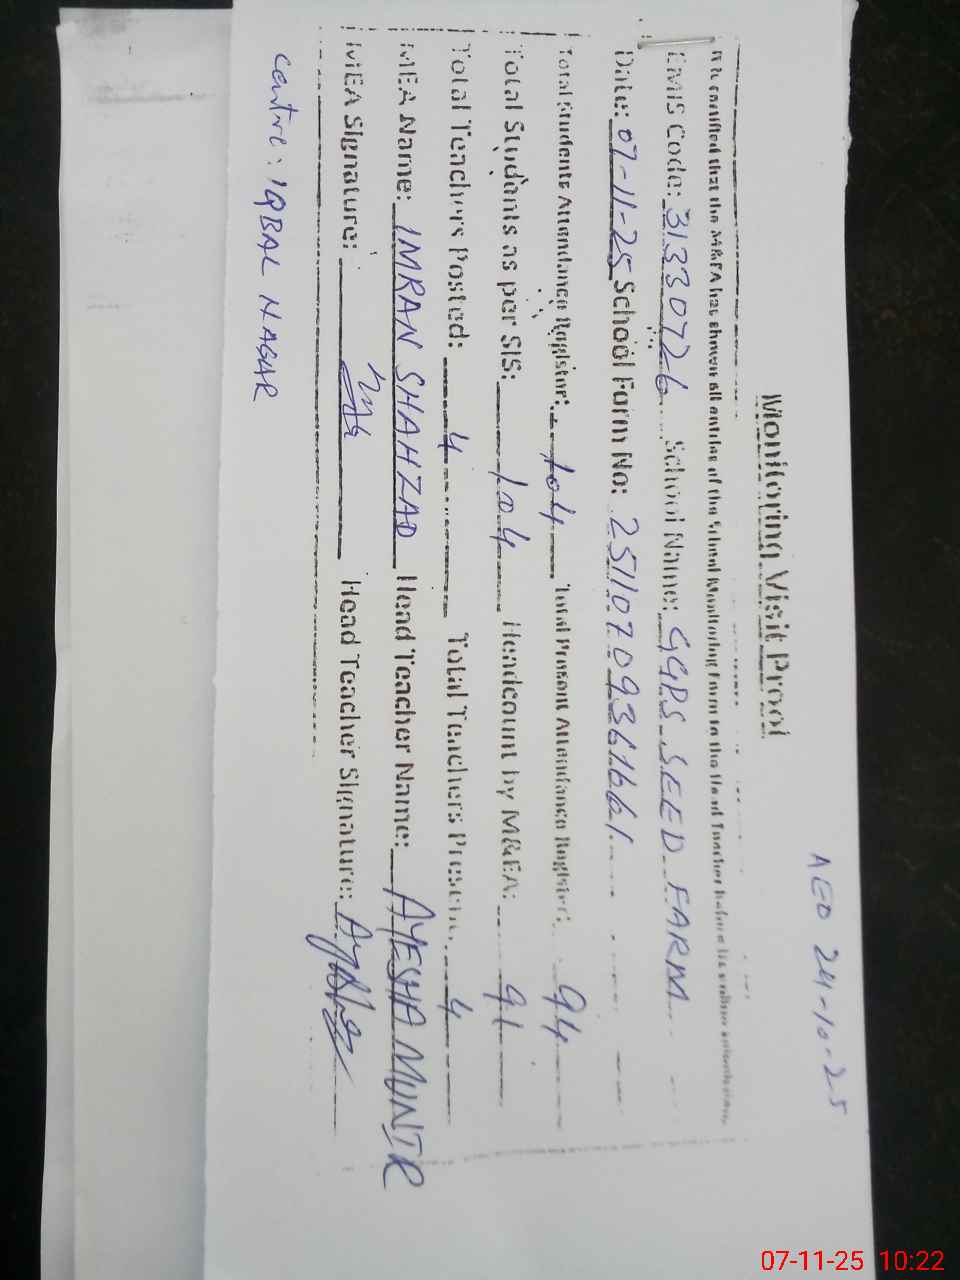 AEO 24-10-25
Monitoring Visit Proof
It is certified that the M&EA has shown all entries of the School Monitoring Form to the Head Teacher before its online submission.
EMIS Code: 31330726 School Name: GGPS SEED FARM
Date: 07-11-25 School Form No: 251107093616661
Total Students Attendance Register: 104 Total Present Attendance Register: 94
Total Students as per SIS: 104 Headcount by M&EA: 91
Total Teachers Posted: 4 Total Teachers Present: 4
MEA Name: IMRAN SHAHZAD Head Teacher Name: AYESHA MUNIR
MEA Signature: Head Teacher Signature: Ayesha
Centre: IQBAL NAGAR
07-11-25 10:22